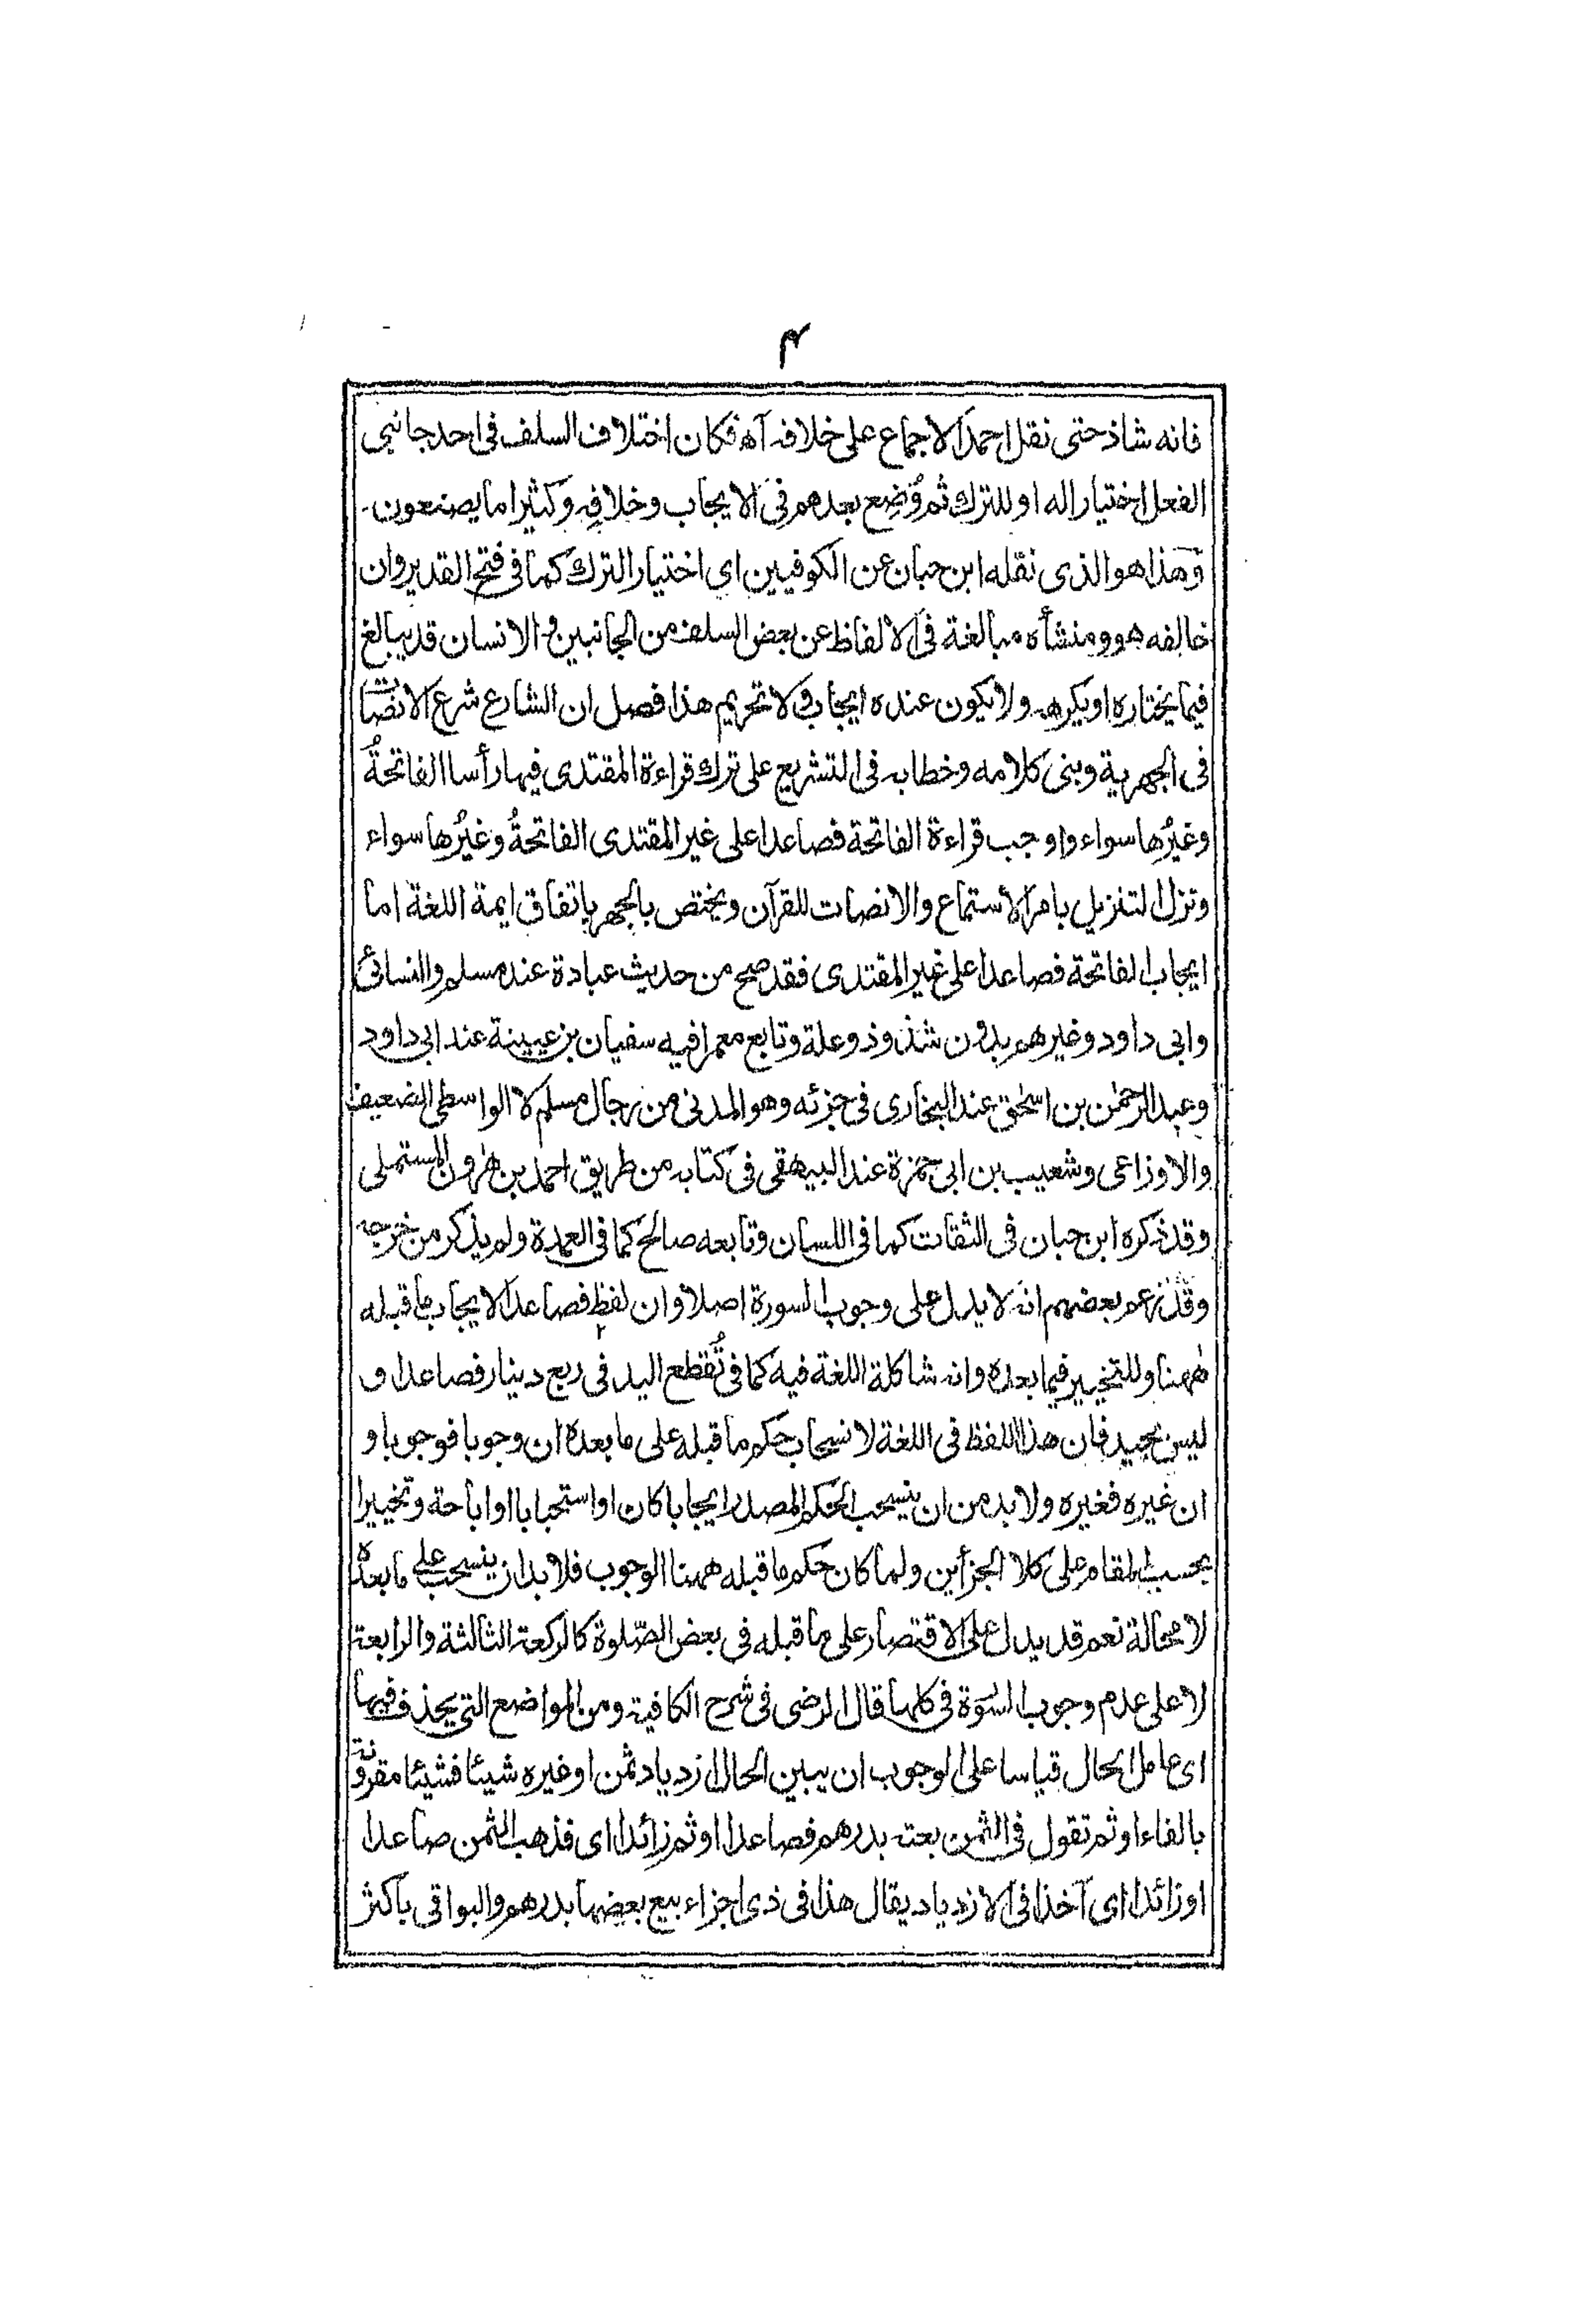 ۴
فانه شاذ حتى نقل احمد الاجماع على خلافه آه فكان اختلاف السلف فى احد جانبى
الفعل اختيارا له او للترك ثم وُضِع بعدهم فى الايجاب وخلافه وكثيرا ما يصنعون۔
وهذا هو الذى نقله ابن حبان عن الكوفيين اى اختيار الترك كما فى فتح القدير وان
خالفه هو ومنشأه مبالغة فى الالفاظ عن بعض السلف من الجانبين والانسان قد يبالغ
فيما يختاره او يكرهه ولا يكون عنده ايجاب ولا تحريم هذا فصل ان الشارع شرع الانصات
فى الجهرية وبنى كلامه وخطابه فى التشريع على ترك قراءة المقتدى فيها رأسا الفاتحةُ
وغيرُها سواء واوجب قراءة الفاتحة فصاعدا على غير المقتدى الفاتحةُ وغيرُها سواء
ونزل التنزيل بامر الاستماع والانصات للقرآن ويختص بالجهر باتفاق ايمة اللغة اما
ايجاب الفاتحة فصاعدا على غير المقتدى فقد صح من حديث عبادة عند مسلم والنسائى
وابى داود وغيرهم بدون شذوذ وعلة وتابع معمرا فيه سفيان بن عيينة عند ابى داود
وعبد الرحمٰن بن اسحٰق عند البخارى فى جزئه وهو المدنى من رجال مسلم لا الواسطى الضعيف
والاوزاعى وشعيب بن ابى حمزة عند البيهقى فى كتابه من طريق احمد بن هٰرون المستملى
وقد ذكره ابن حبان فى الثقات كما فى اللسان وتابعه صالح كما فى العمدة ولم يذكر من خرجه
وقد زعم بعضهم انه لا يدل على وجوب السورة اصلا وان لفظ فصاعدا لايجاب ما قبله
هٰهنا وللتخيير فيما بعده وانه شاكلة اللغة فيه كما فى تُقطع اليد فى ربع دينار فصاعدا و
ليس بجيد فان هذا اللفظ فى اللغة لانسحاب حكم ما قبله على ما بعده ان وجوبا فوجوبا و
ان غيره فغيره ولا بد من ان ينسحب الحكم المصدر ايجابا كان او استحبابا او اباحة وتخييرا
بحسب المقام على كلا الجزأين ولما كان حكم ما قبله ههنا الوجوب فلا بد ان ينسحب على ما بعده
لا محالة نعم قد يدل على الاقتصار على ما قبله فى بعض الصّلوة كالركعة الثالثة والرابعة
لا على عدم وجوب السورة فى كلها قال الرضى فى شرح الكافية ومن المواضع التى يحذف فيها
اى عامل الحال قياسا على الوجوب ان يبين الحال ازدياد ثمن او غيره شيئا فشيئا مقرونة
بالفاء او ثم تقول فى الثمن بعته بدرهم فصاعدا او ثم زائدا اى فذهب الثمن صاعدا
او زائدا اى آخذا فى الازدياد يقال هذا فى ذى اجزاء بيع بعضها بدرهم والبواقى باكثر